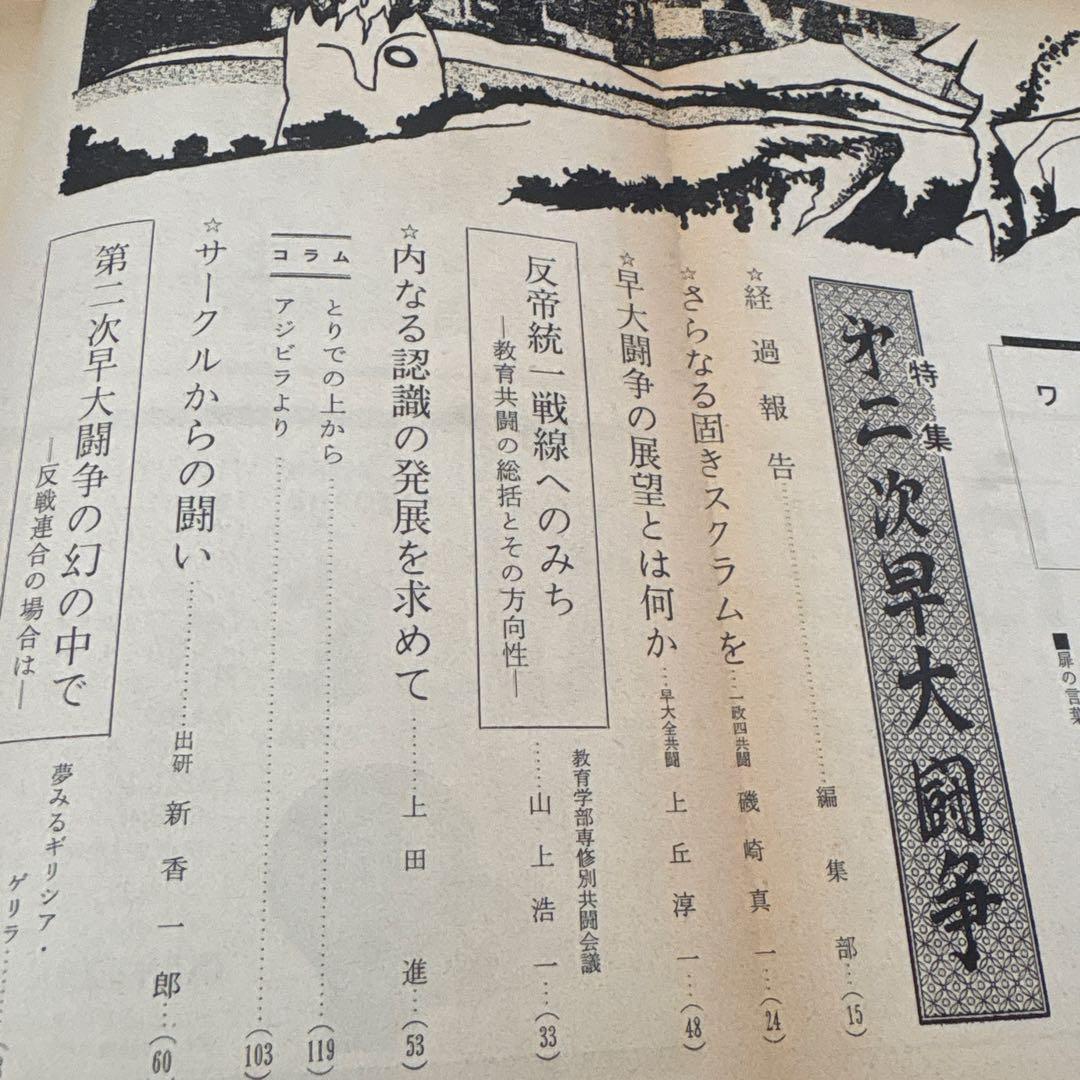 ワ
■扉の言葉
特集
第二次早大闘争
☆経過報告……編集部…(15)
☆さらなる固きスクラムを…一政四共闘 磯崎真一…(24)
☆早大闘争の展望とは何か…早大全共闘 上丘淳一…(48)
反帝統一戦線へのみち
―教育共闘の総括とその方向性―
教育学部専修別共闘会議
……山上浩一…(33)
☆内なる認識の発展を求めて……上田進…(53)
コラム
とりでの上から……(119)
アジビラより……(103)
☆サークルからの闘い……出研 新香一郎…(60)
第二次早大闘争の幻の中で
―反戦連合の場合は―
夢みるギリシア・
ゲリラ……